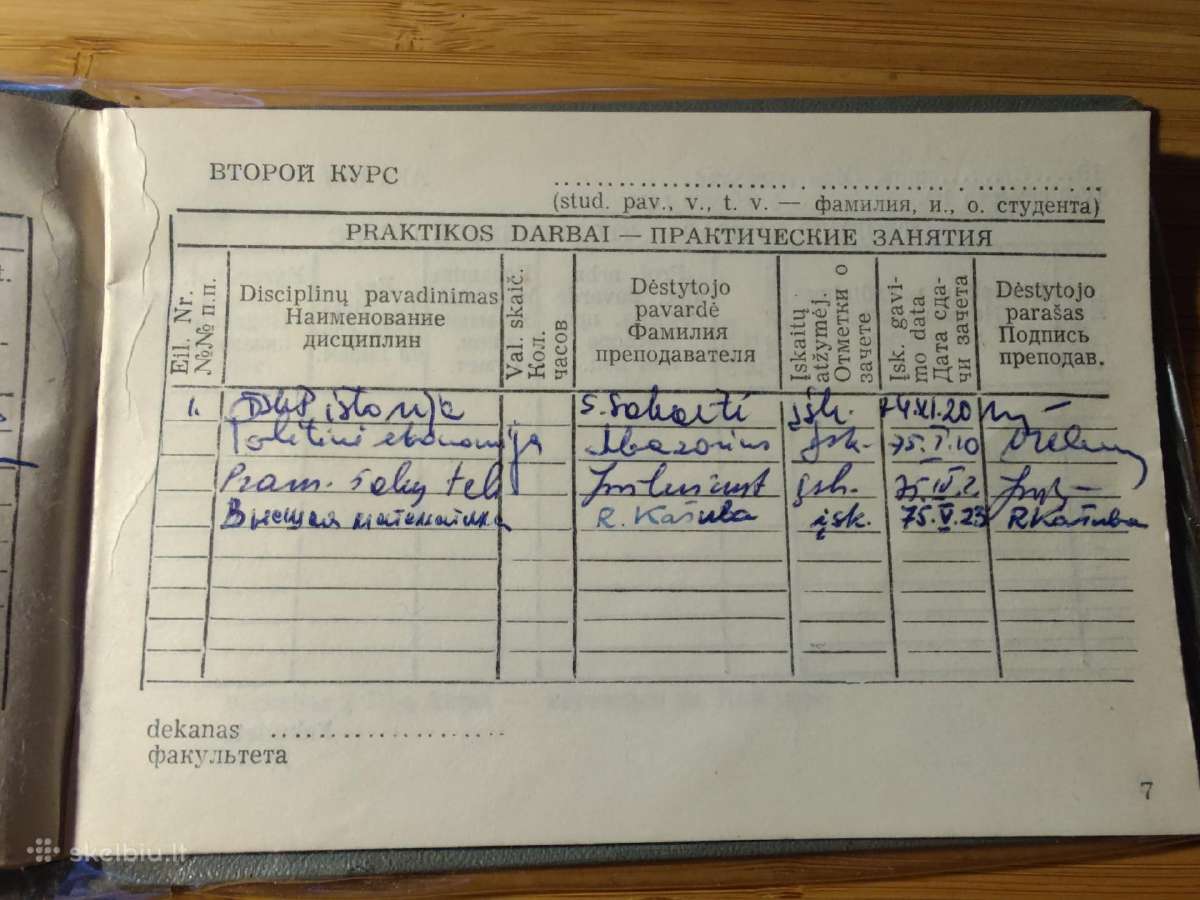 ВТОРОЙ КУРС
(stud. pav., v., t. v. — фамилия, и., о. студента)
PRAKTIKOS DARBAI — ПРАКТИЧЕСКИЕ ЗАНЯТИЯ
Eil. Nr. №№ п.п.
Disciplinų pavadinimas Наименование дисциплин
Val. skaič. Кол. часов
Dėstytojo pavardė Фамилия преподавателя
Įskaitų atžymėj. Отметки о зачете
Įsk. gavimo data Дата сдачи зачета
Dėstytojo parašas Подпись преподав.
1. istorija S. įsk. 74.XI.20
Politinė ekonomija įsk. 75.I.10
Pram. šakų tech įsk. 75.IV.2
Высшая математика R. Kašuba įsk. 75.V.23 RKašuba
dekanas
факультета
7
skelbiu.lt